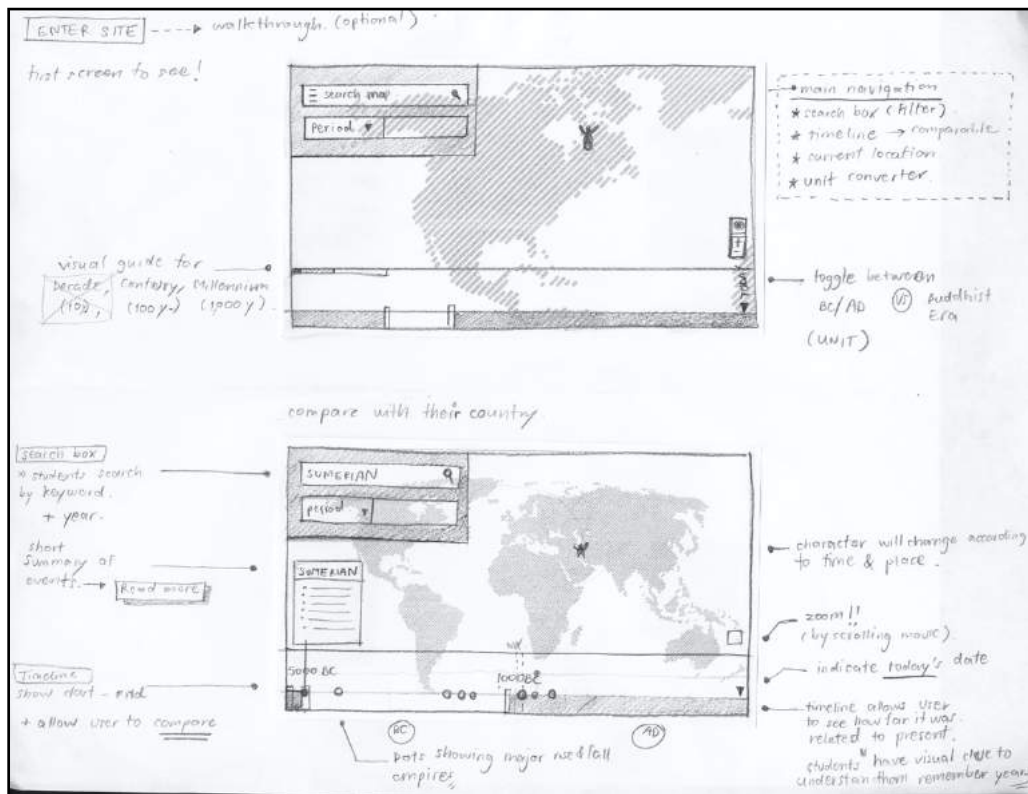 ENTER SITE walkthrough. (optional)
first screen to see!
search map
Period
main navigation
* search box (filter)
* timeline → comparable
* current location
* unit converter.
visual guide for
Decade, Century, Millennium
(100 y.) (1,000 y.)
toggle between
BC/AD VS Buddhist
Era
(UNIT)
compare with their country.
search box
* students search
by keyword.
+ year.
short
summary of
events. → Read more
SUMERIAN
period
SUMERIAN
5000 BC
1000 BC
character will change according
to time & place.
zoom!!
(by scrolling mouse).
indicate today's date
Timeline
show start - end
+ allow user to compare
timeline allows user
to see how far it was
related to present.
students have visual clue to
understand remember year
BC
AD
Dots showing major rise & fall
empires